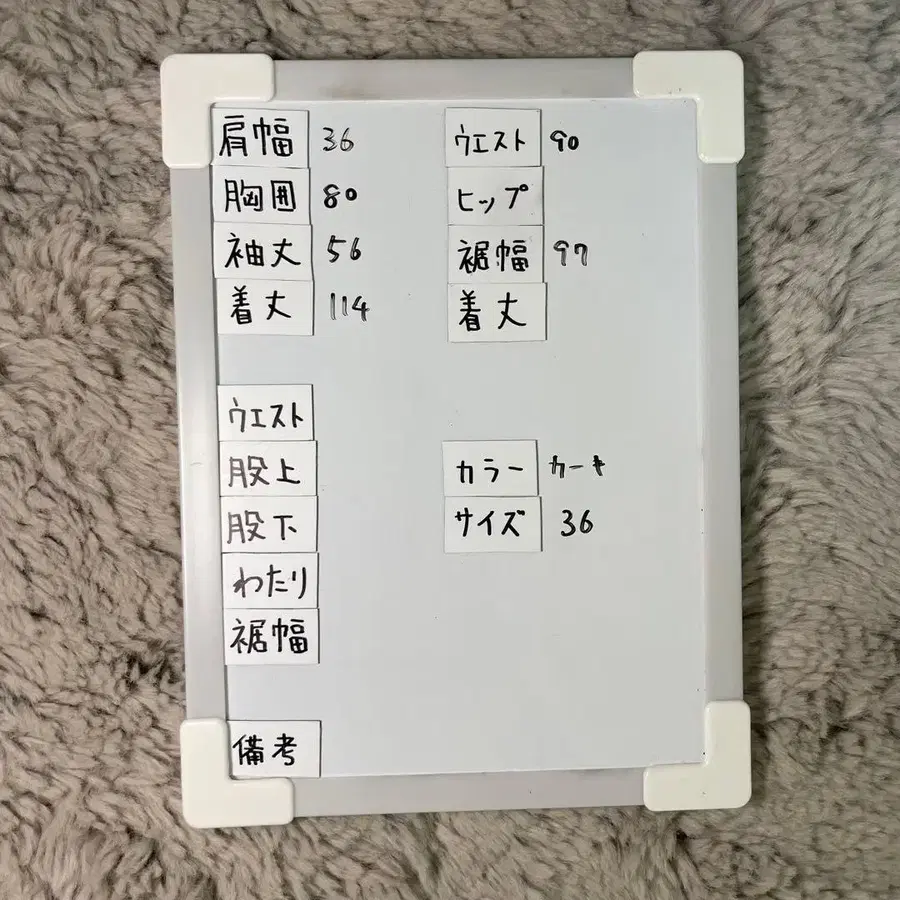 肩幅 36
胸囲 80
袖丈 56
着丈 114
ウエスト 90
ヒップ
裾幅 97
着丈
ウエスト
股上
股下
わたり
裾幅
カラー カーキ
サイズ 36
備考